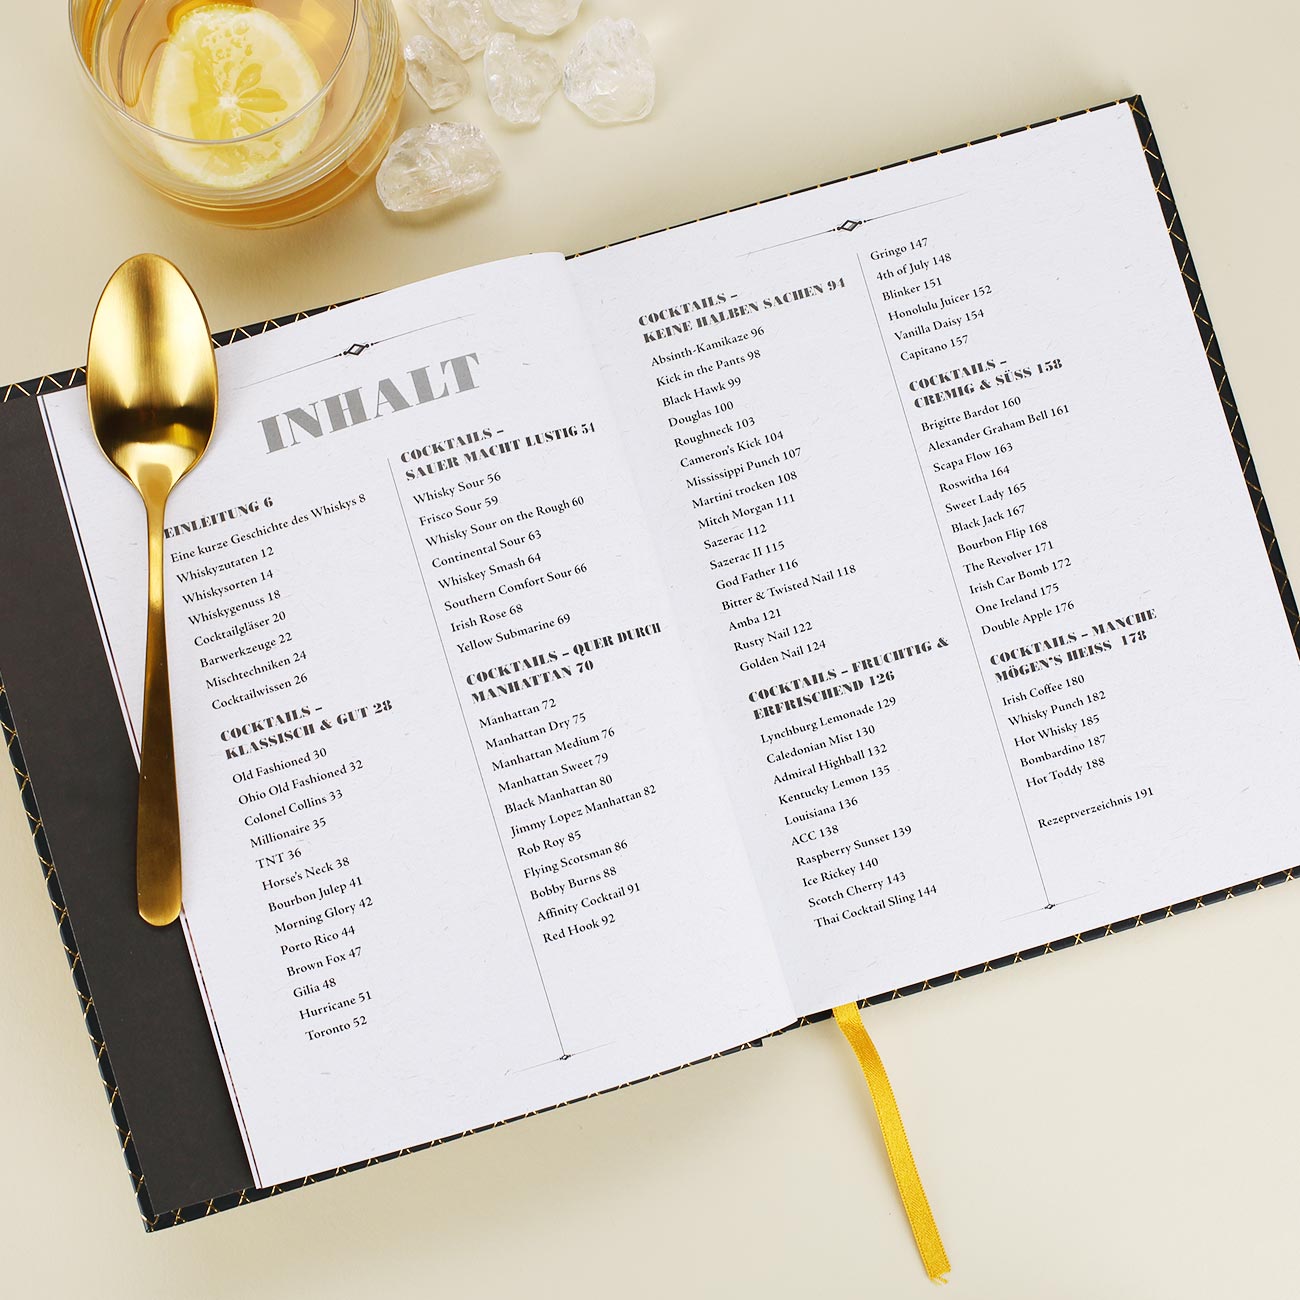 INHALT
EINLEITUNG 6
Eine kurze Geschichte des Whiskys 8
Whiskyzutaten 12
Whiskysorten 14
Whiskygenuss 18
Cocktailgläser 20
Barwerkzeuge 22
Mischtechniken 24
Cocktailwissen 26
COCKTAILS –
KLASSISCH & GUT 28
Old Fashioned 30
Ohio Old Fashioned 32
Colonel Collins 33
Millionaire 35
TNT 36
Horse's Neck 38
Bourbon Julep 41
Morning Glory 42
Porto Rico 44
Brown Fox 47
Gilia 48
Hurricane 51
Toronto 52
COCKTAILS –
SAUER MACHT LUSTIG 54
Whisky Sour 56
Frisco Sour 59
Whisky Sour on the Rough 60
Continental Sour 63
Whiskey Smash 64
Southern Comfort Sour 66
Irish Rose 68
Yellow Submarine 69
COCKTAILS – QUER DURCH
MANHATTAN 70
Manhattan 72
Manhattan Dry 75
Manhattan Medium 76
Manhattan Sweet 79
Black Manhattan 80
Jimmy Lopez Manhattan 82
Rob Roy 85
Flying Scotsman 86
Bobby Burns 88
Affinity Cocktail 91
Red Hook 92
COCKTAILS –
KEINE HALBEN SACHEN 94
Absinth-Kamikaze 96
Kick in the Pants 98
Black Hawk 99
Douglas 100
Roughneck 103
Cameron's Kick 104
Mississippi Punch 107
Martini trocken 108
Mitch Morgan 111
Sazerac 112
Sazerac II 115
God Father 116
Bitter & Twisted Nail 118
Amba 121
Rusty Nail 122
Golden Nail 124
COCKTAILS – FRUCHTIG &
ERFRISCHEND 126
Lynchburg Lemonade 129
Caledonian Mist 130
Admiral Highball 132
Kentucky Lemon 135
Louisiana 136
ACC 138
Raspberry Sunset 139
Ice Rickey 140
Scotch Cherry 143
Thai Cocktail Sling 144
Gringo 147
4th of July 148
Blinker 151
Honolulu Juicer 152
Vanilla Daisy 154
Capitano 157
COCKTAILS –
CREMIG & SÜSS 158
Brigitte Bardot 160
Alexander Graham Bell 161
Scapa Flow 163
Roswitha 164
Sweet Lady 165
Black Jack 167
Bourbon Flip 168
The Revolver 171
Irish Car Bomb 172
One Ireland 175
Double Apple 176
COCKTAILS – MANCHE
MÖGEN'S HEISS 178
Irish Coffee 180
Whisky Punch 182
Hot Whisky 185
Bombardino 187
Hot Toddy 188
Rezeptverzeichnis 191